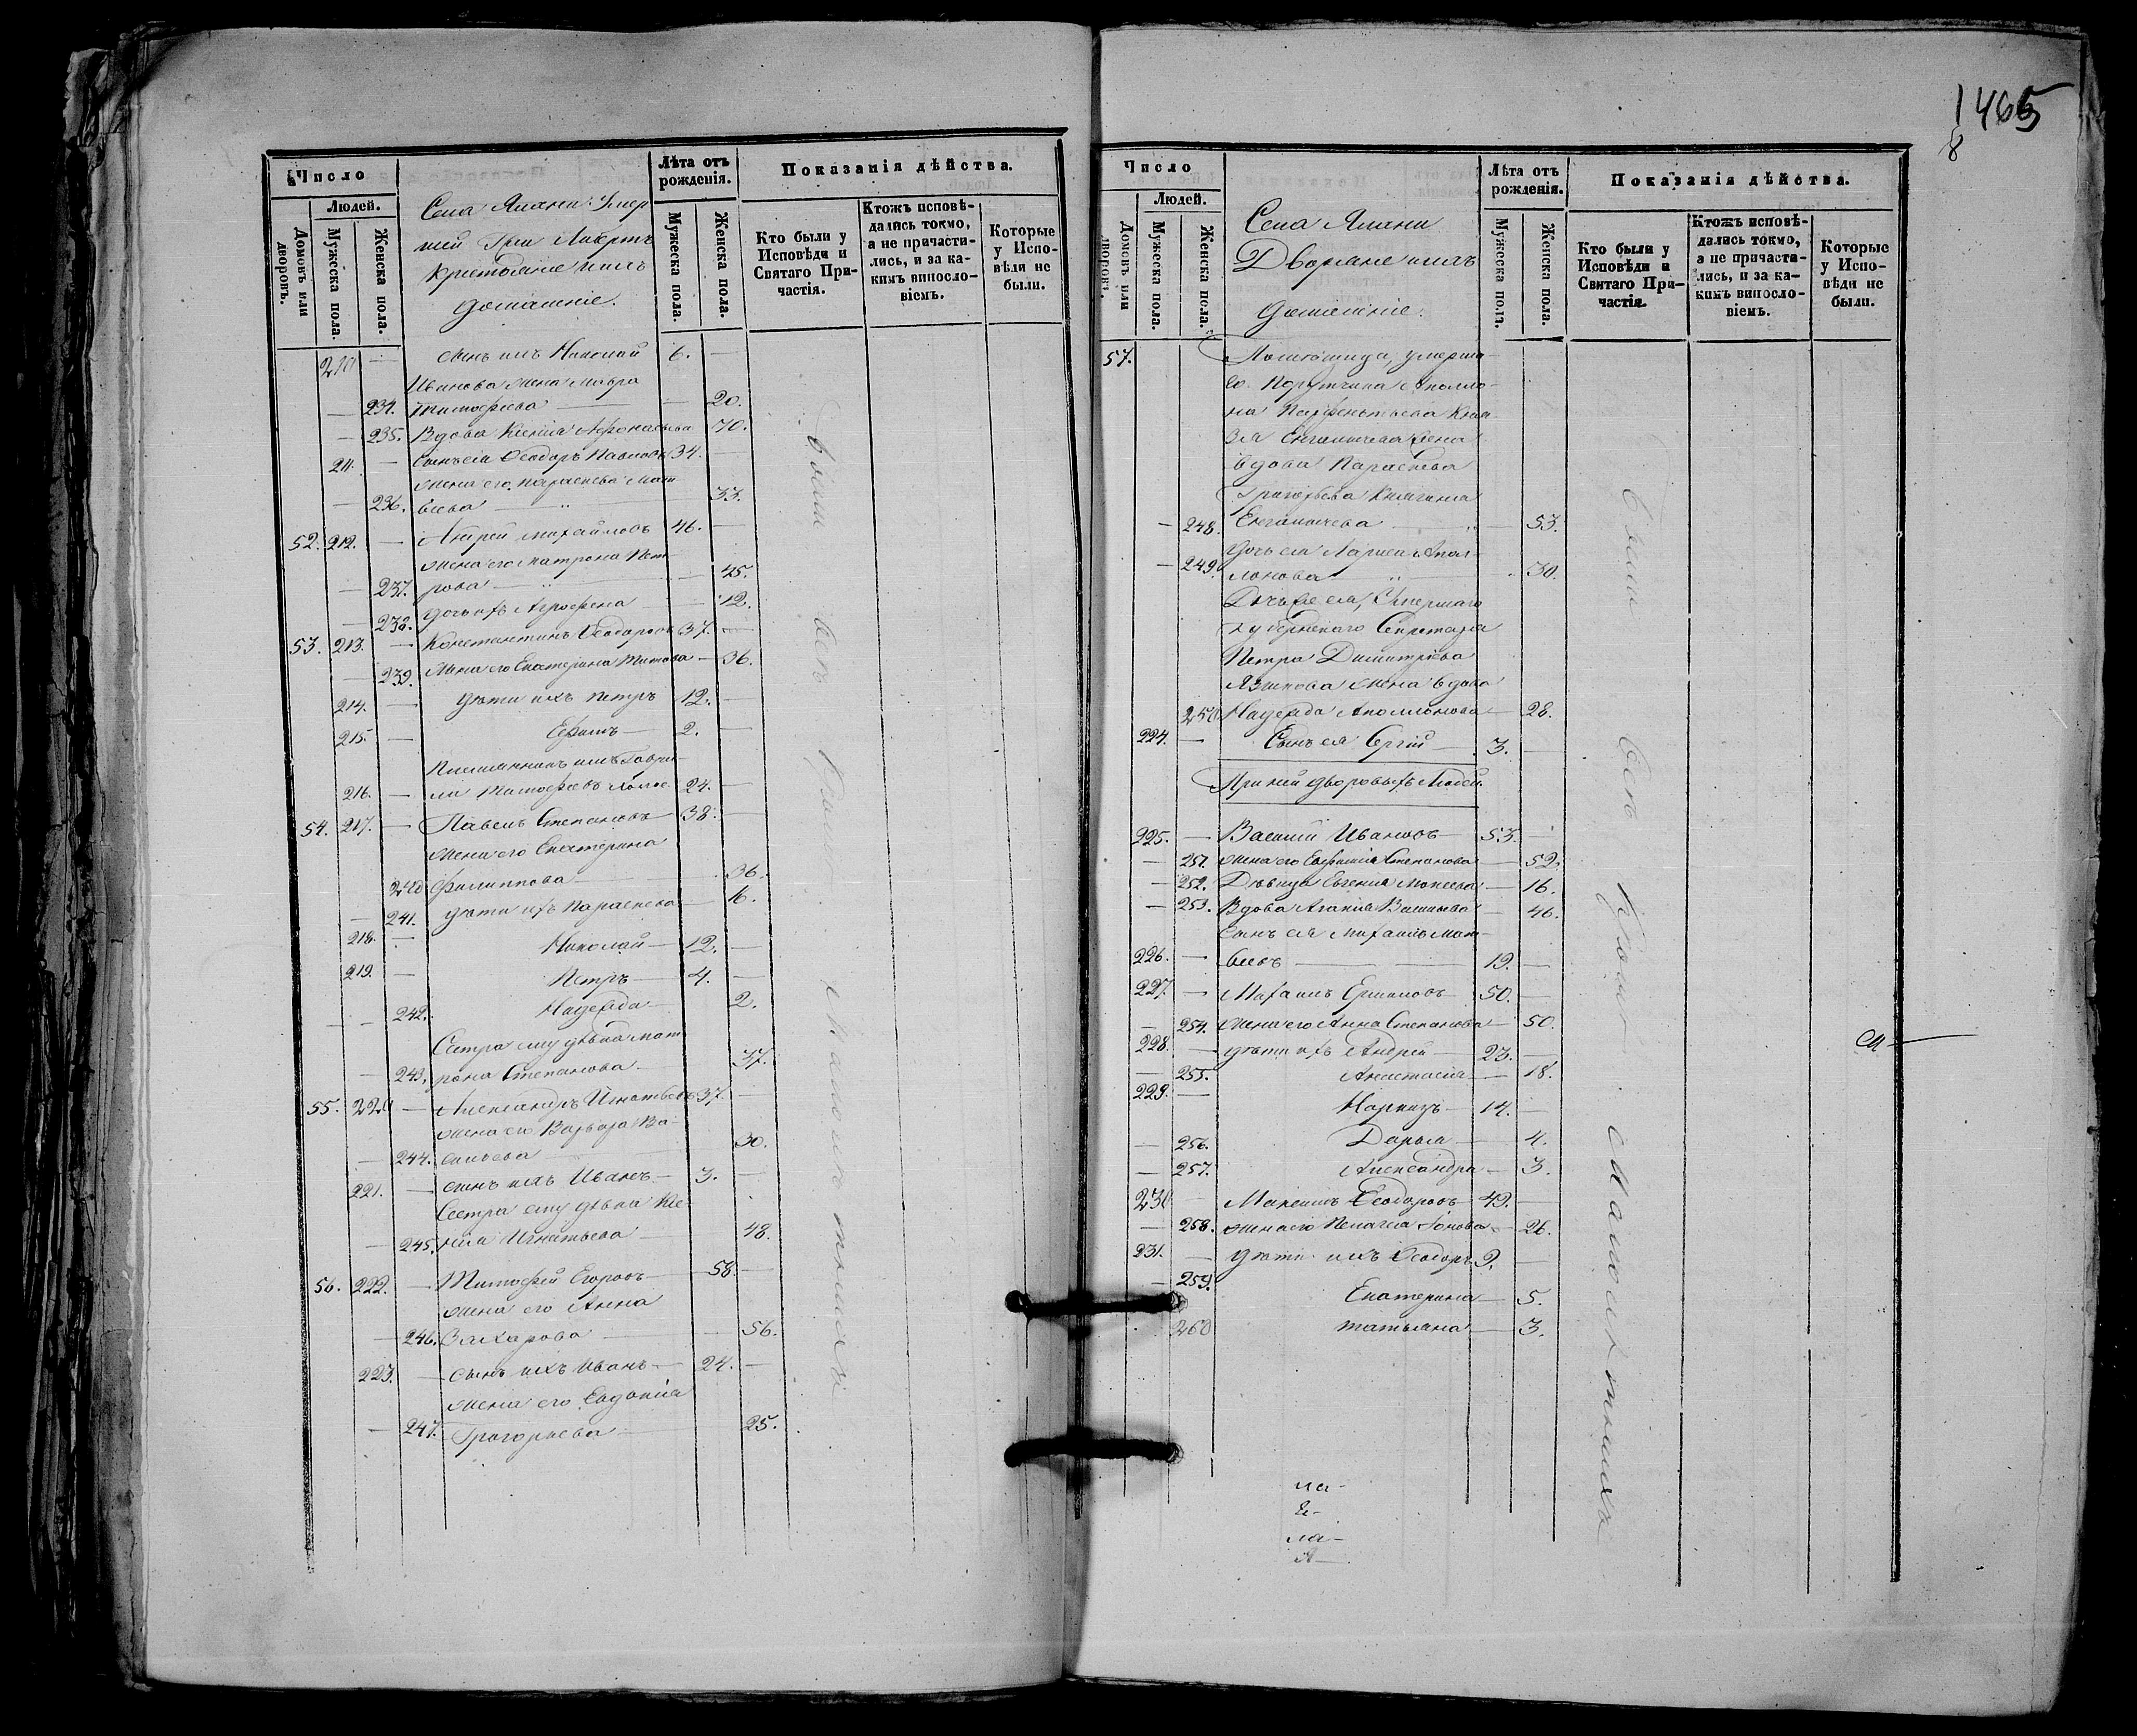 Число
Людей.
Домовъ или дворовъ.
Мужеска пола
Женска пола.
Села Умер
шей Гри
Крестьяне ихъ
домашніе.
Лѣта отъ рожденія.
Мужеска пола.
Женска пола.
Показанія дѣйства.
Кто были у Исповѣди и Святаго Причастія.
Ктожъ исповѣдались токмо, а не причастились, и за какимъ винословіемъ.
Которые у Исповѣди не были.
210 — сынъ ихъ Николай 6. —
Иванова жена Мавра
— 234. Тимофеева — 20.
— 235. Вдова Ксенія Афонасьева 70.
211. — Сынъ ея Ѳеодоръ Павловъ 34. —
жена его Параскева Мат
— 236. веева — 33.
52. 212. — Андрей Михайловъ 46. —
жена его Матрона Пет-
— 237. рова — 45.
— 238. дочь ихъ Агрофена — 12.
53. 213. — Константинъ Ѳеодоровъ 37. —
— 239. жена его Екатерина Титова — 36.
214. — дѣти ихъ Петръ 12. —
215. — Ефимъ — 2. —
Племянникъ ихъ Гаври-
216. — ла Тимофеевъ 24. —
54. 217. — Павелъ Степановъ — 38. —
жена его Екатерина
240 Филиппова — 36.
— 241. дѣти ихъ Параскева — 16.
218. — Николай — 12. —
219. — Петръ — 4. —
— 242. Надежда — 2.
Сестра ему дѣвка Мат
— 243. рона Степанова — 37.
55. 220 — Александръ Игнатьевъ 37. —
жена его Варвара Ва-
— 244. сильева — 30.
221. — сынъ ихъ Иванъ — 3. —
Сестра ему дѣвка Ксе-
— 245. нія Игнатьева — 48.
56. 222. — Тимофей Егоровъ — 58. —
жена его Анна
— 246. Захарова — 56.
223. — сынъ ихъ Иванъ — 24. —
жена его Евдокія
— 247. Григорьева — 25.
Были всѣ Кромѣ малолѣтнихъ
1465
8
Число
Людей.
Домовъ или дворовъ.
Мужеска пола.
Женска пола.
Села
Дворяне ихъ
домашніе.
Лѣта отъ рожденія.
Мужеска пола.
Женска пола.
Показанія дѣйства.
Кто были у Исповѣди и Святаго Причастія.
Ктожъ исповѣдались токмо, а не причастились, и за какимъ винословіемъ.
Которые у Исповѣди не были.
57. Помѣщица, умерша-
го Порутчика Аполло-
на Парфентьева Кня-
зя Енгалычева жена
вдова Параскева
Григорьева Княгиня
— 248. Енгалычева — 53.
дочь ея Лариса Апол-
— 249. лонова — 30.
Дочь же ея, Умершаго
Губернскаго Секретаря
Петра Димитріева
Языкова жена вдова
250 Надежда Аполлонова — 28.
224. — Сынъ ея Сергій — 3. —
При ней дворовыхъ людей.
225. — Василій Ивановъ — 53. —
— 251. жена его Евфимія Степанова — 52.
— 252. Дѣвица Евгенія Моисеева — 16.
— 253. Вдова Агафія Васильева — 46.
Сынъ ея Михаилъ Мат-
226. — веевъ — 19. —
227. — Михаилъ Ермиловъ — 50. —
— 254. жена его Анна Степанова — 50.
228. — дѣти ихъ Андрей — 23. —
— 255. Анастасія — 18.
229. — Наркизъ — 14. —
— 256. Дарья — 4.
— 257. Александра — 3.
230 — Максимъ Ѳеодоровъ — 49. —
— 258. жена его Пелагея — 26.
231. — дѣти ихъ Ѳеодоръ 9. —
— 259. Екатерина — 5.
260 Татьяна — 3.
Были всѣ Кромѣ малолѣтнихъ